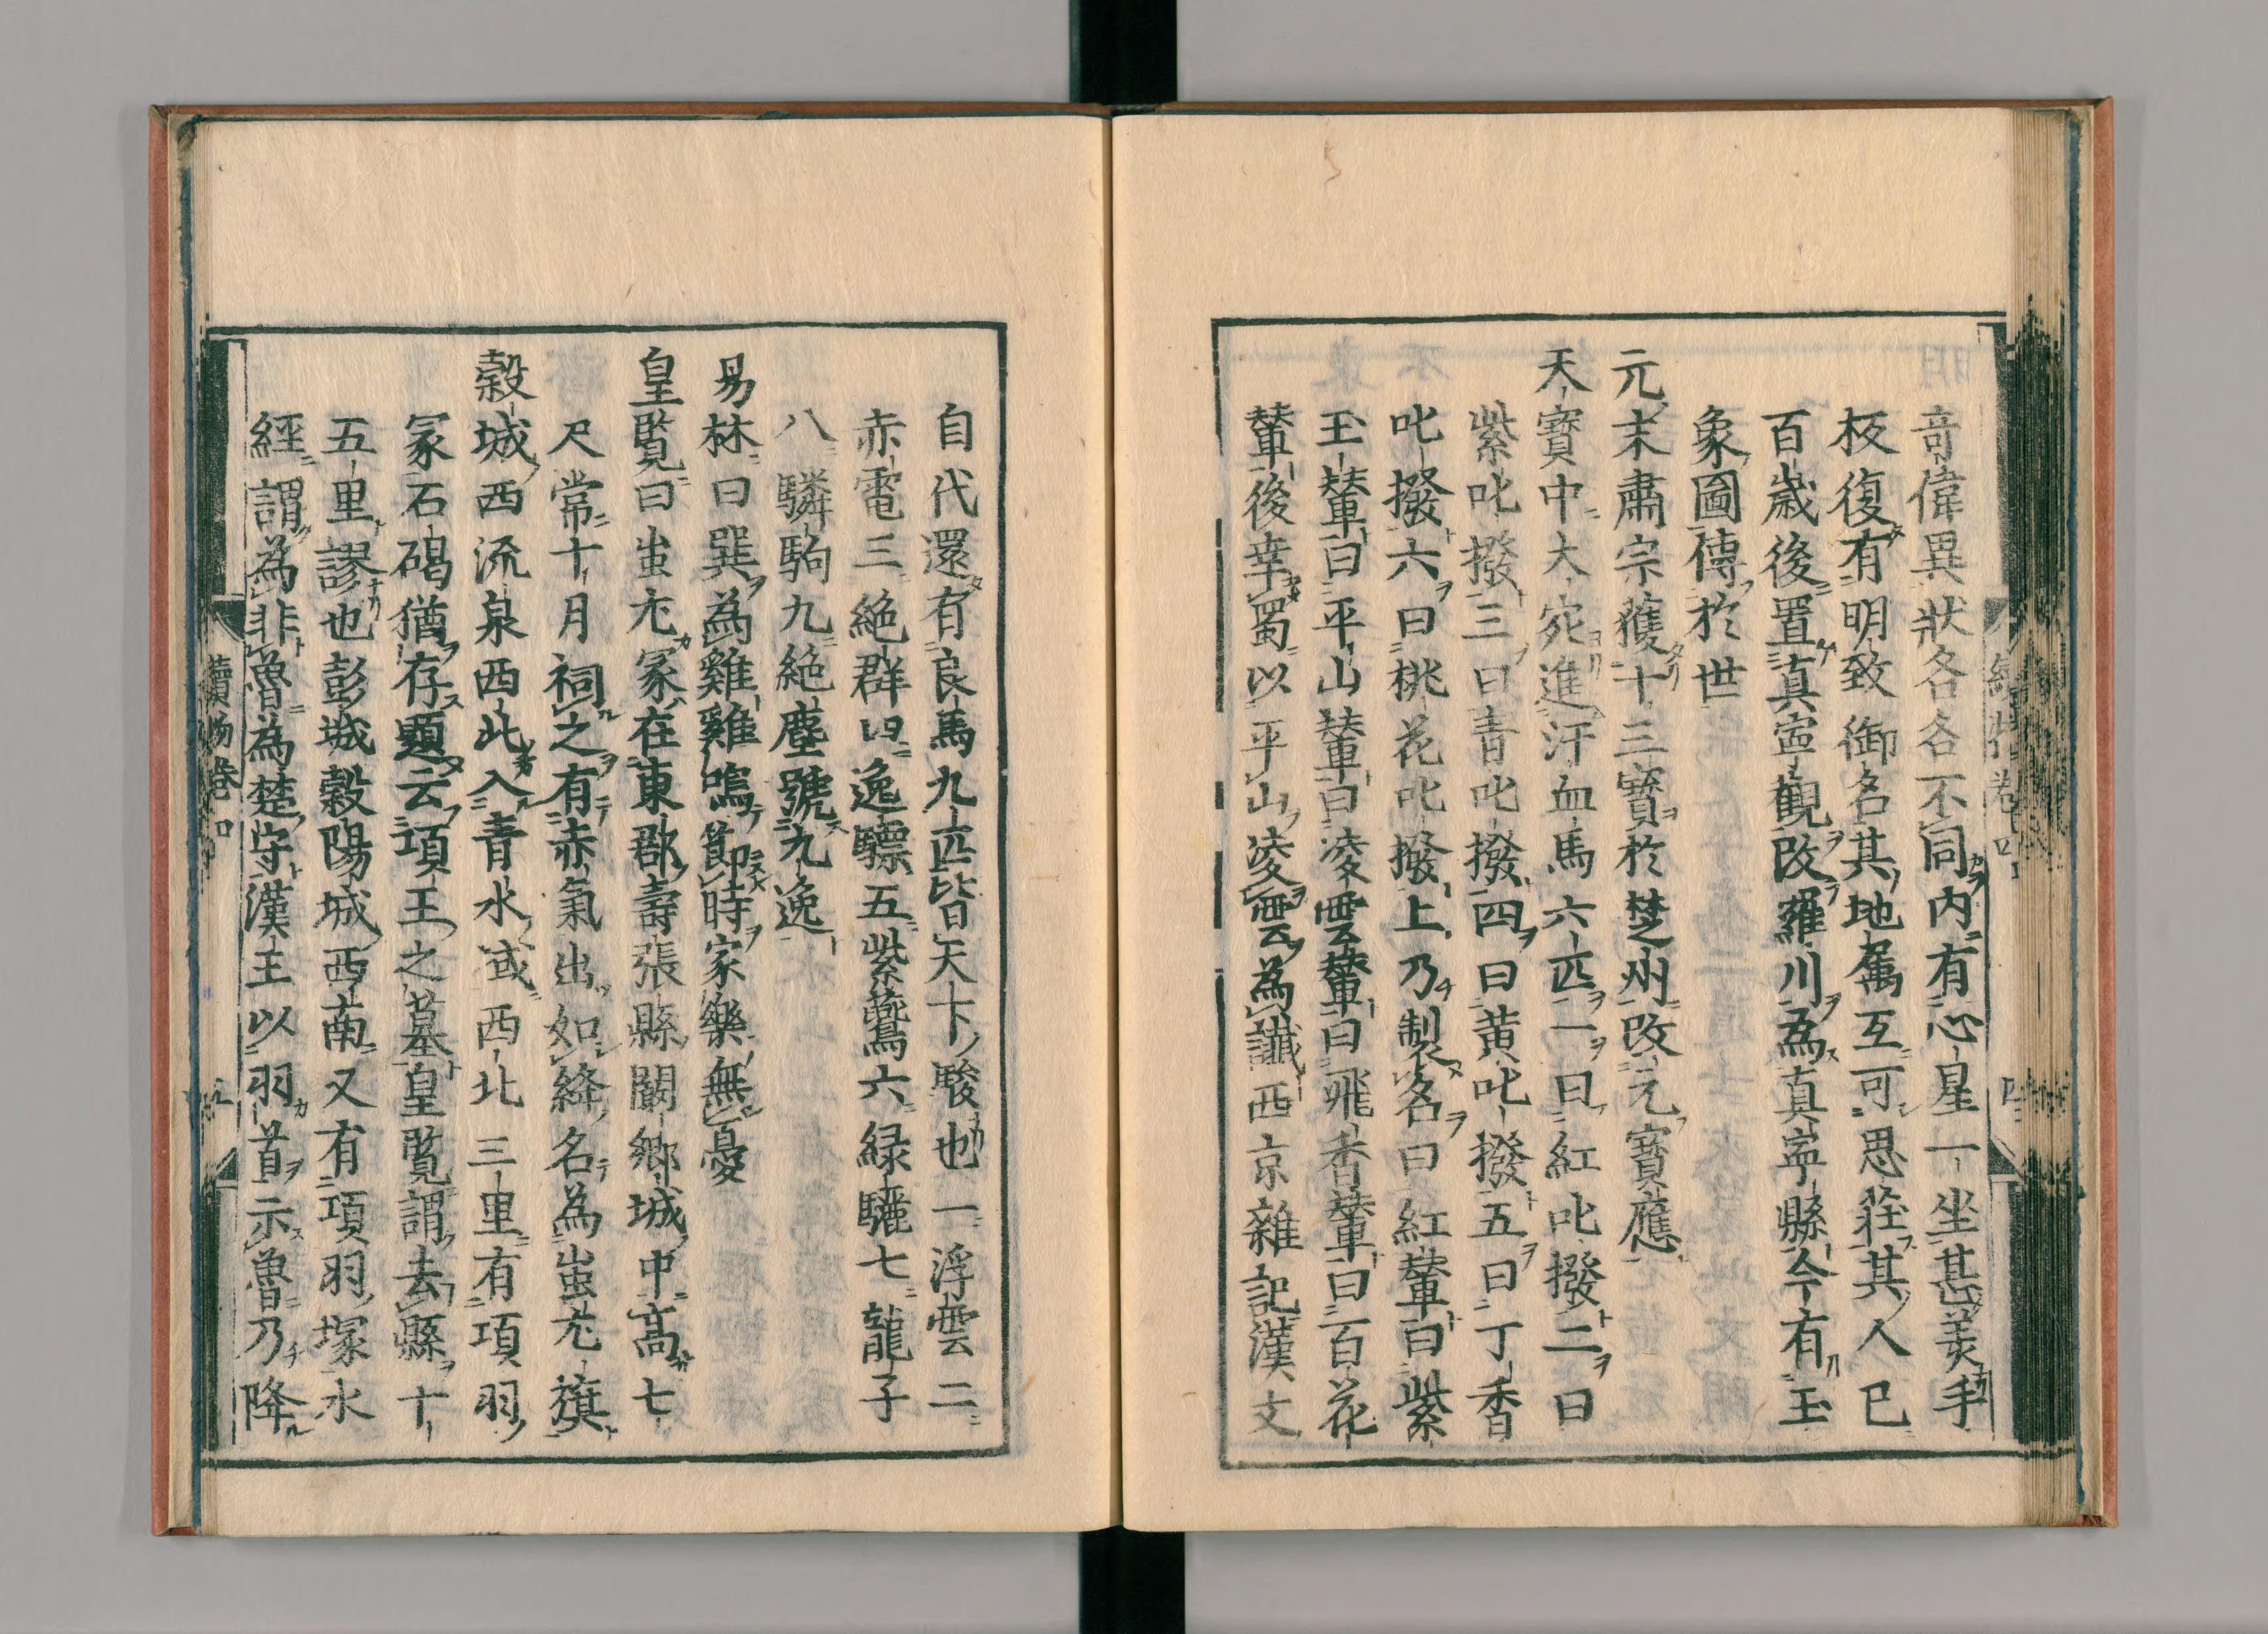 奇偉異狀各各不同内有心星一坐甚美手
板復有明致御名其地属互可思莊其人已
百歳後置真寧觀改羅川為真寧縣今有玉
象圖傳於世
元末肅宗獲十三寶於楚州改元寶應
天寶中大宛進汗血馬六匹一曰紅叱撥二曰
紫叱撥三曰青叱撥四曰黄叱撥五曰丁香
叱撥六曰桃花叱撥上乃製名曰紅輦曰紫
玉輦曰平山輦曰凌雲輦曰飛香輦曰百花
輦後幸蜀以平山凌雲為讖西京雜記漢文
自代還有良馬九匹皆天下駿也一浮雲二
赤電三絶群四逸驃五紫鷰六緑驪七龍子
八驎駒九絶塵號九逸
易林曰巽為雞雞鳴節時家樂無憂
皇覧曰蚩尤冢在東郡壽張縣闞鄉城中高七
尺常十月祠之有赤氣出如絳名為蚩尤旗
穀城西流泉西北入青水或西北三里有項羽
冢石碣猶存題云項王之墓皇覽謂去縣十
五里謬也彭城穀陽城西南又有項羽塚水
經謂為非魯為楚守漢王以羽首示魯乃降
續博卷四
五